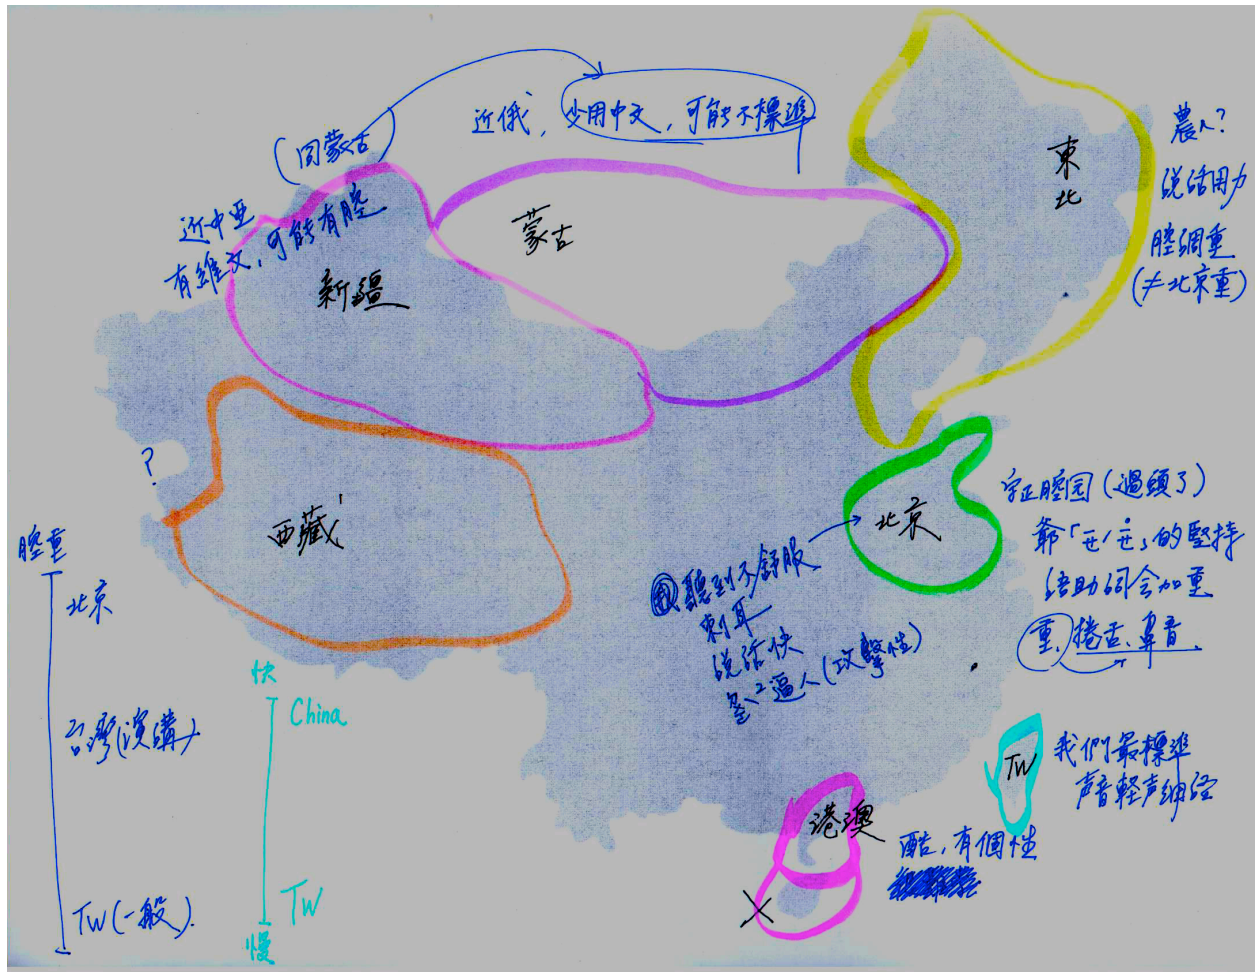 近俄，少用中文，可能不標準
(同蒙古)
近中亞
有維文，可能有腔
新疆
蒙古
東北
農人？
說話用力
腔調重
(≠北京重)
?
西藏
北京
字正腔园(過頭了)
爺「ㄝˊㄝ˙」的堅持
語助詞會加重
重、捲舌、鼻音.
聽到不舒服
刺耳
説話快
咄²逼人(攻擊性)
腔重
北京
台灣(演講)
TW(一般).
快
China
TW
慢
TW
我們最標準
声音輕声細
港澳
酷，有個性